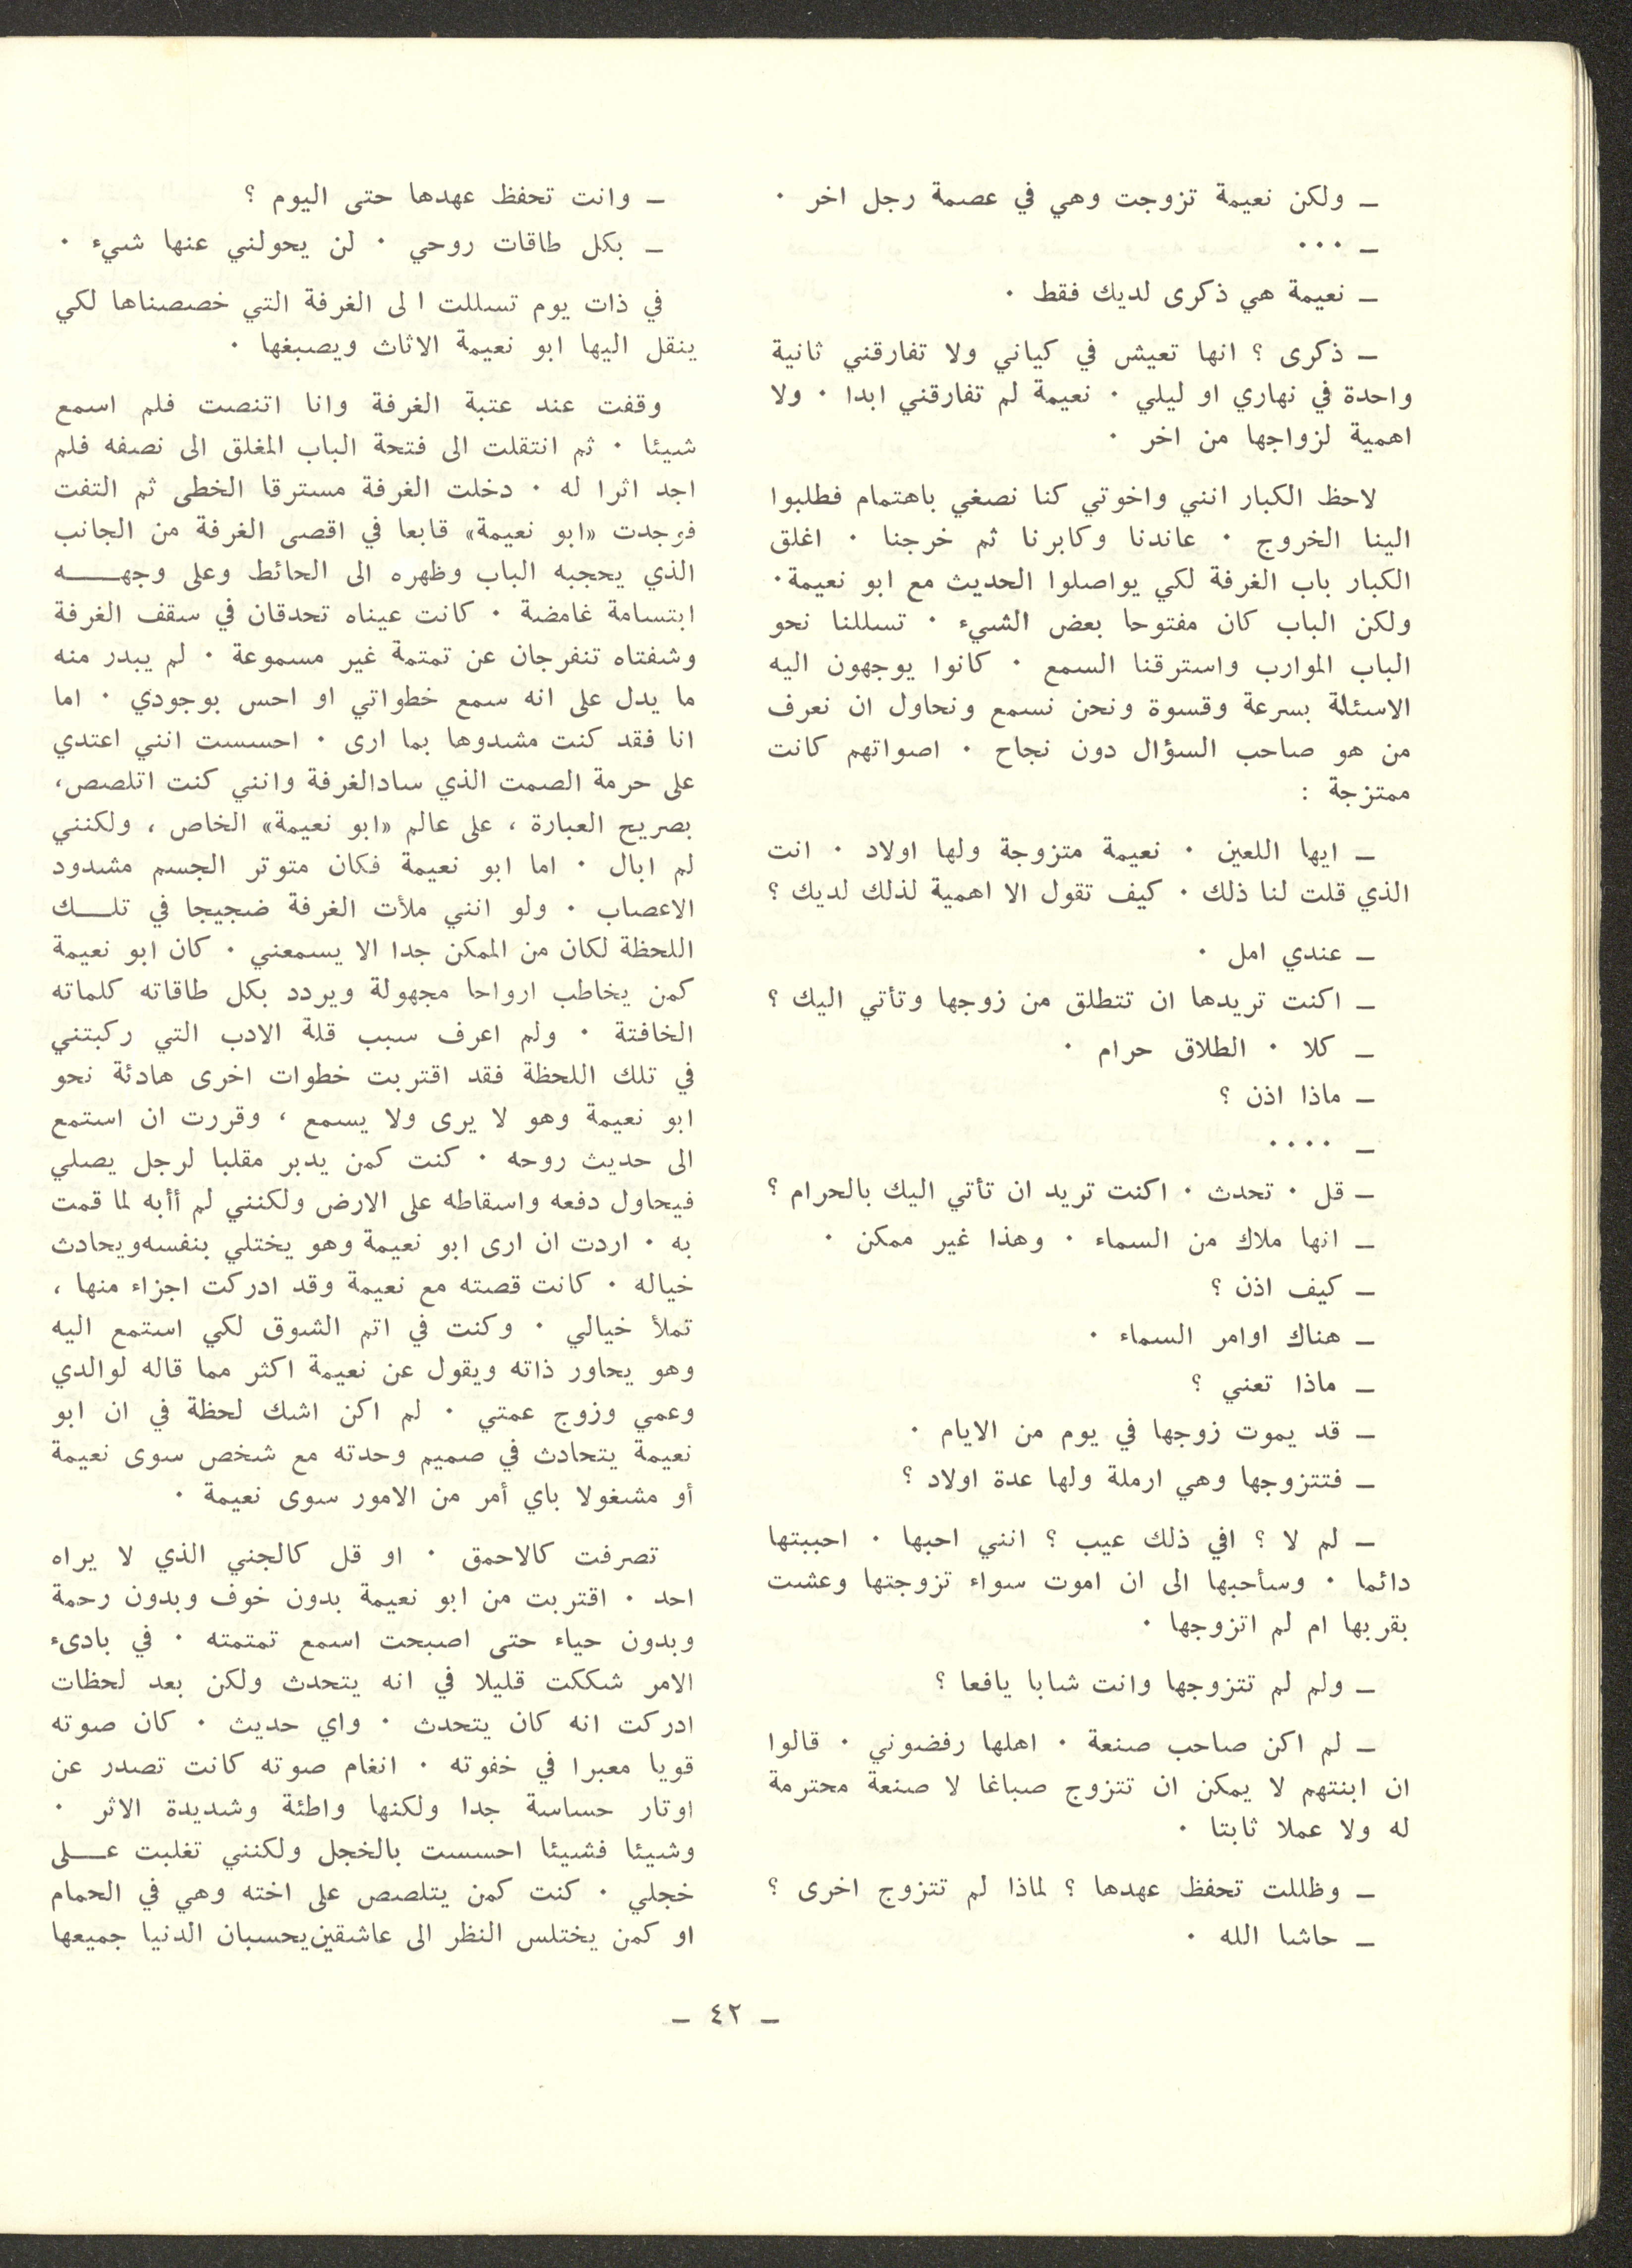 ـ ولكن نعيمة تزوجت وهي في عصمة رجل اخر ٠
ـ ٠٠٠
ـ نعيمة هي ذكرى لديك فقط ٠
ـ ذكرى ؟ انها تعيش في كياني ولا تفارقني ثانية
واحدة في نهاري او ليلي ٠ نعيمة لم تفارقني ابدا ٠ ولا
اهمية لزواجها من اخر ٠
لاحظ الكبار انني واخوتي كنا نصغي باهتمام فطلبوا
الينا الخروج ٠ عاندنا وكابرنا ثم خرجنا ٠ اغلق
الكبار باب الغرفة لكي يواصلوا الحديث مع ابو نعيمة٠
ولكن الباب كان مفتوحا بعض الشيء ٠ تسللنا نحو
الباب الموارب واسترقنا السمع ٠ كانوا يوجهون اليه
الاسئلة بسرعة وقسوة ونحن نسمع ونحاول ان نعرف
من هو صاحب السؤال دون نجاح ٠ اصواتهم كانت
ممتزجة :
ـ ايها اللعين ٠ نعيمة متزوجة ولها اولاد ٠ انت
الذي قلت لنا ذلك ٠ كيف تقول الا اهمية لذلك لديك ؟
ـ عندي امل ٠
ـ اكنت تريدها ان تتطلق من زوجها وتأتي اليك ؟
ـ كلا ٠ الطلاق حرام ٠
ـ ماذا اذن ؟
ـ ٠٠٠٠
ـ قل ٠ تحدث ٠ اكنت تريد ان تأتي اليك بالحرام ؟
ـ انها ملاك من السماء ٠ وهذا غير ممكن ٠
ـ كيف اذن ؟
ـ هناك اوامر السماء ٠
ـ ماذا تعني ؟
ـ قد يموت زوجها في يوم من الايام ٠
ـ فتتزوجها وهي ارملة ولها عدة اولاد ؟
ـ لم لا ؟ افي ذلك عيب ؟ انني احبها ٠ احببتها
دائما ٠ وسأحبها الى ان اموت سواء تزوجتها وعشت
بقربها ام لم اتزوجها ٠
ـ ولم لم تتزوجها وانت شابا يافعا ؟
ـ لم اكن صاحب صنعة ٠ اهلها رفضوني ٠ قالوا
ان ابنتهم لا يمكن ان تتزوج صباغا لا صنعة محترمة
له ولا عملا ثابتا ٠
ـ وظللت تحفظ عهدها ؟ لماذا لم تتزوج اخرى ؟
ـ حاشا الله ٠
ـ وانت تحفظ عهدها حتى اليوم ؟
ـ بكل طاقات روحي ٠ لن يحولني عنها شيء ٠
في ذات يوم تسللت ا لى الغرفة التي خصصناها لكي
ينقل اليها ابو نعيمة الاثاث ويصبغها ٠
وقفت عند عتبة الغرفة وانا اتنصت فلم اسمع
شيئا ٠ ثم انتقلت الى فتحة الباب المغلق الى نصفه فلم
اجد اثرا له ٠ دخلت الغرفة مسترقا الخطى ثم التفت
فوجدت «ابو نعيمة» قابعا في اقصى الغرفة من الجانب
الذي يحجبه الباب وظهره الى الحائط وعلى وجهــــه
ابتسامة غامضة ٠ كانت عيناه تحدقان في سقف الغرفة
وشفتاه تنفرجان عن تمتمة غير مسموعة ٠ لم يبدر منه
ما يدل على انه سمع خطواتي او احس بوجودي ٠ اما
انا فقد كنت مشدوها بما ارى ٠ احسست انني اعتدي
على حرمة الصمت الذي سادالغرفة وانني كنت اتلصص،
بصريح العبارة ، على عالم «ابو نعيمة» الخاص ، ولكنني
لم ابال ٠ اما ابو نعيمة فكان متوتر الجسم مشدود
الاعصاب ٠ ولو انني ملأت الغرفة ضجيجا في تلــــك
اللحظة لكان من الممكن جدا الا يسمعني ٠ كان ابو نعيمة
كمن يخاطب ارواحا مجهولة ويردد بكل طاقاته كلماته
الخافتة ٠ ولم اعرف سبب قلة الادب التي ركبتني
في تلك اللحظة فقد اقتربت خطوات اخرى هادئة نحو
ابو نعيمة وهو لا يرى ولا يسمع ، وقررت ان استمع
الى حديث روحه ٠ كنت كمن يدبر مقلبا لرجل يصلي
فيحاول دفعه واسقاطه على الارض ولكنني لم أأبه لما قمت
به ٠ اردت ان ارى ابو نعيمة وهو يختلي بنفسهويحادث
خياله ٠ كانت قصته مع نعيمة وقد ادركت اجزاء منها ،
تملأ خيالي ٠ وكنت في اتم الشوق لكي استمع اليه
وهو يحاور ذاته ويقول عن نعيمة اكثر مما قاله لوالدي
وعمي وزوج عمتي ٠ لم اكن اشك لحظة في ان ابو
نعيمة يتحادث في صميم وحدته مع شخص سوى نعيمة
أو مشغولا باي أمر من الامور سوى نعيمة ٠
تصرفت كالاحمق ٠ او قل كالجني الذي لا يراه
احد ٠ اقتربت من ابو نعيمة بدون خوف وبدون رحمة
وبدون حياء حتى اصبحت اسمع تمتمته ٠ في بادىء
الامر شككت قليلا في انه يتحدث ولكن بعد لحظات
ادركت انه كان يتحدث ٠ واي حديث ٠ كان صوته
قويا معبرا في خفوته ٠ انغام صوته كانت تصدر عن
اوتار حساسة جدا ولكنها واطئة وشديدة الاثر ٠
وشيئا فشيئا احسست بالخجل ولكنني تغلبت عــــلى
خجلي ٠ كنت كمن يتلصص على اخته وهي في الحمام
او كمن يختلس النظر الى عاشقين‌يحسبان الدنيا جميعها
ـ ٤٢ ـ